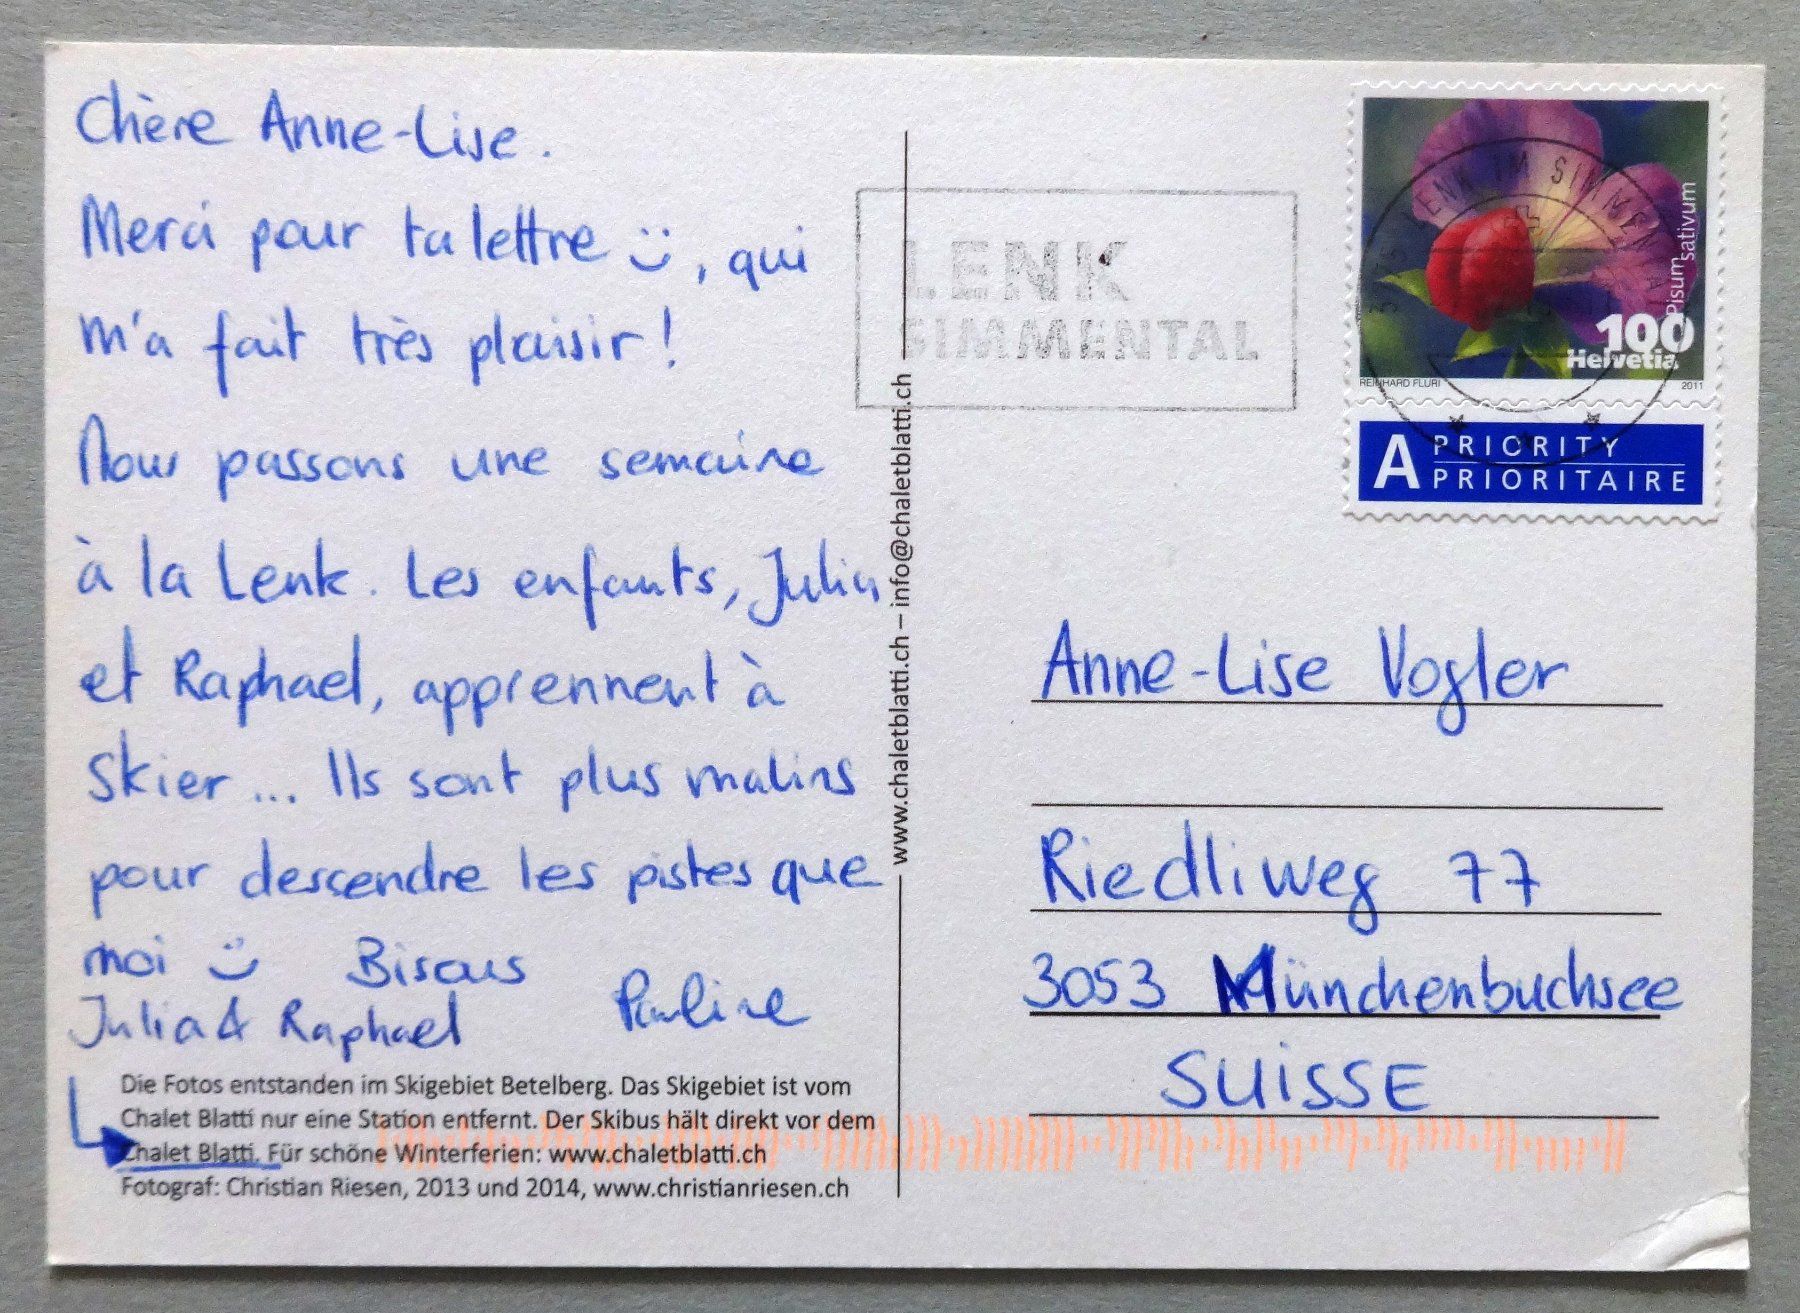 Chère Anne-Lise.
Merci pour ta lettre :), qui
m'a fait très plaisir!
Nous passons une semaine
à la Lenk. Les enfants, Julia
et Raphael, apprennent à
skier... Ils sont plus malins
pour descendre les pistes que
moi :) Bisous
Julia & Raphael Pauline
Die Fotos entstanden im Skigebiet Betelberg. Das Skigebiet ist vom
Chalet Blatti nur eine Station entfernt. Der Skibus hält direkt vor dem
Chalet Blatti. Für schöne Winterferien: www.chaletblatti.ch
Fotograf: Christian Riesen, 2013 und 2014, www.christianriesen.ch
www.chaletblatti.ch – info@chaletblatti.ch
LENK
SIMMENTAL
LENK IM SIMMENTAL
Pisum
sativum
100
Helvetia
REINHARD FLURI 2011
A PRIORITY
PRIORITAIRE
Anne-Lise Vogler
Riedliweg 77
3053 Münchenbuchsee
SUISSE